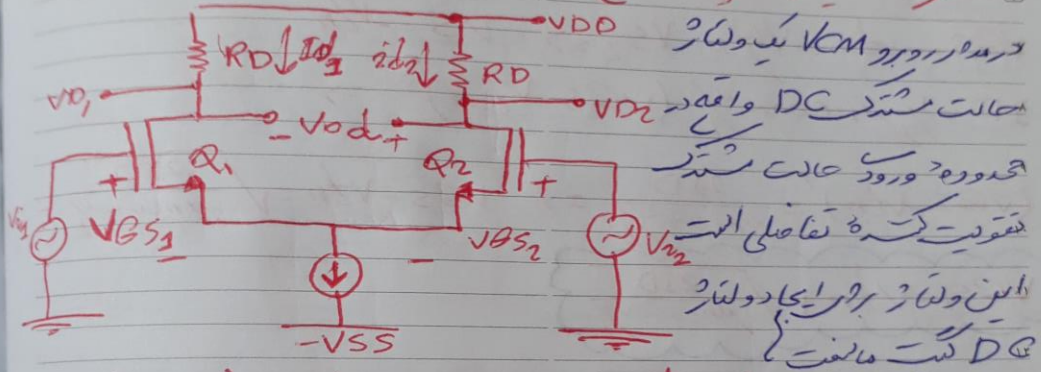 VDD
RD Id1 id2 RD
VD1 VD2
- Vod +
Q1 Q2
+ +
Vin1 VGS1 - - VGS2 Vin2
-VSS
در مدار روبرو VCM یک ولتاژ
حالت مشترک DC واقع در
محدوده ورودی حالت مشترک
تقویت کننده تفاضلی است
این ولتاژ برای ایجاد ولتاژ
DC گیت ماسفت